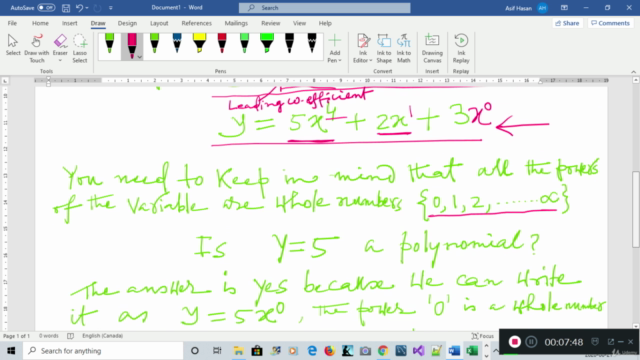 AutoSave Off Document1 - Word Search Asif Hasan AH
File Home Insert Draw Design Layout References Mailings Review View Help Share Comments
Select Draw with Touch Eraser Lasso Select Add Pen Ink Editor Ink to Shape Ink to Math Ink Replay
Tools Pens Convert Replay
Leading co-efficient
y = 5x⁴ + 2x¹ + 3x⁰
You need to keep in mind that all the powers
of the variable are whole numbers {0, 1, 2, ....... ∞}
Is y = 5 a polynomial?
The answer is yes because we can write
it as y = 5x⁰, The power '0' is a whole number
Page 1 of 1 0 words English (Canada) Focus
Type here to search
00:07:48